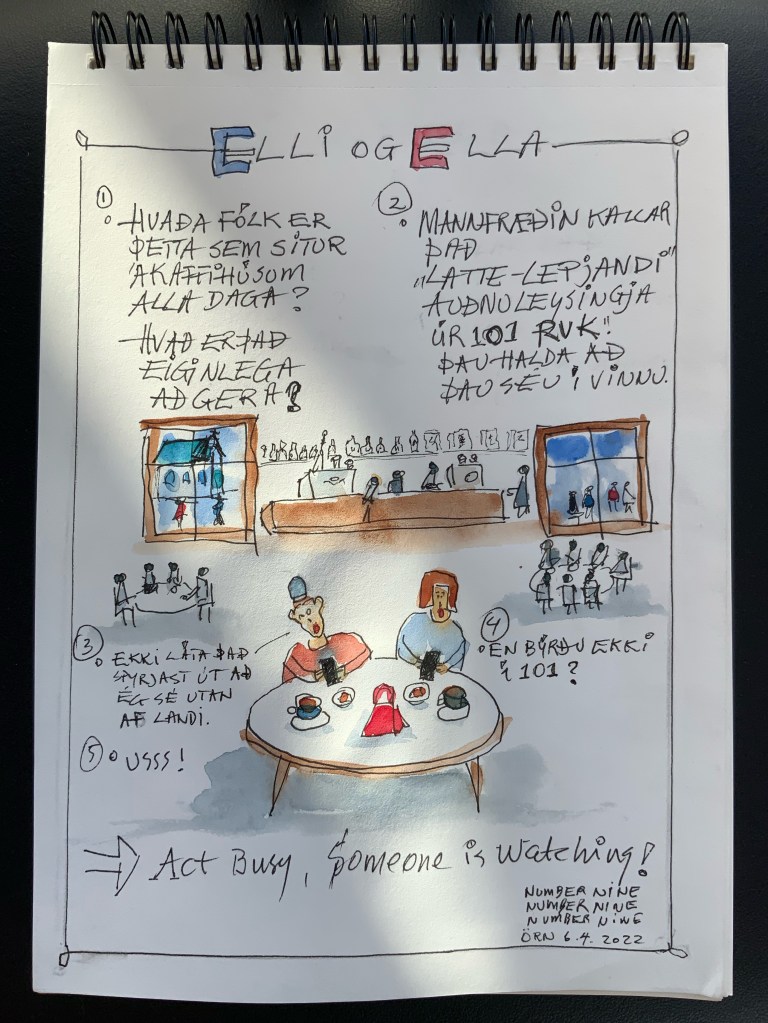 ELLI OG ELLA
①
HVAÐA FÓLK ER
ÞETTA SEM SITUR
Á KAFFIHÚSOM
ALLA DAGA?
HVAÐ ER ÞAÐ
EIGINLEGA
AÐ GERA?
②
MANNFRÆÐIN KALLAR
ÞAÐ
„LATTE-LEPJANDI"
AUÐNULEYSINGJA
ÚR 101 RVK!
ÞAU HALDA AÐ
ÞAU SÉU Í VINNU.
③
EKKI LÁTA ÞAÐ
SPYRJAST ÚT AÐ
ÉG SÉ UTAN
AF LANDI.
④
EN BÝRÐU EKKI
Í 101?
⑤ USSS!
⇒ Act Busy, Someone is Watching!
NUMBER NINE
NUMBER NINE
NUMBER NINE
ÖRN 6.4. 2022